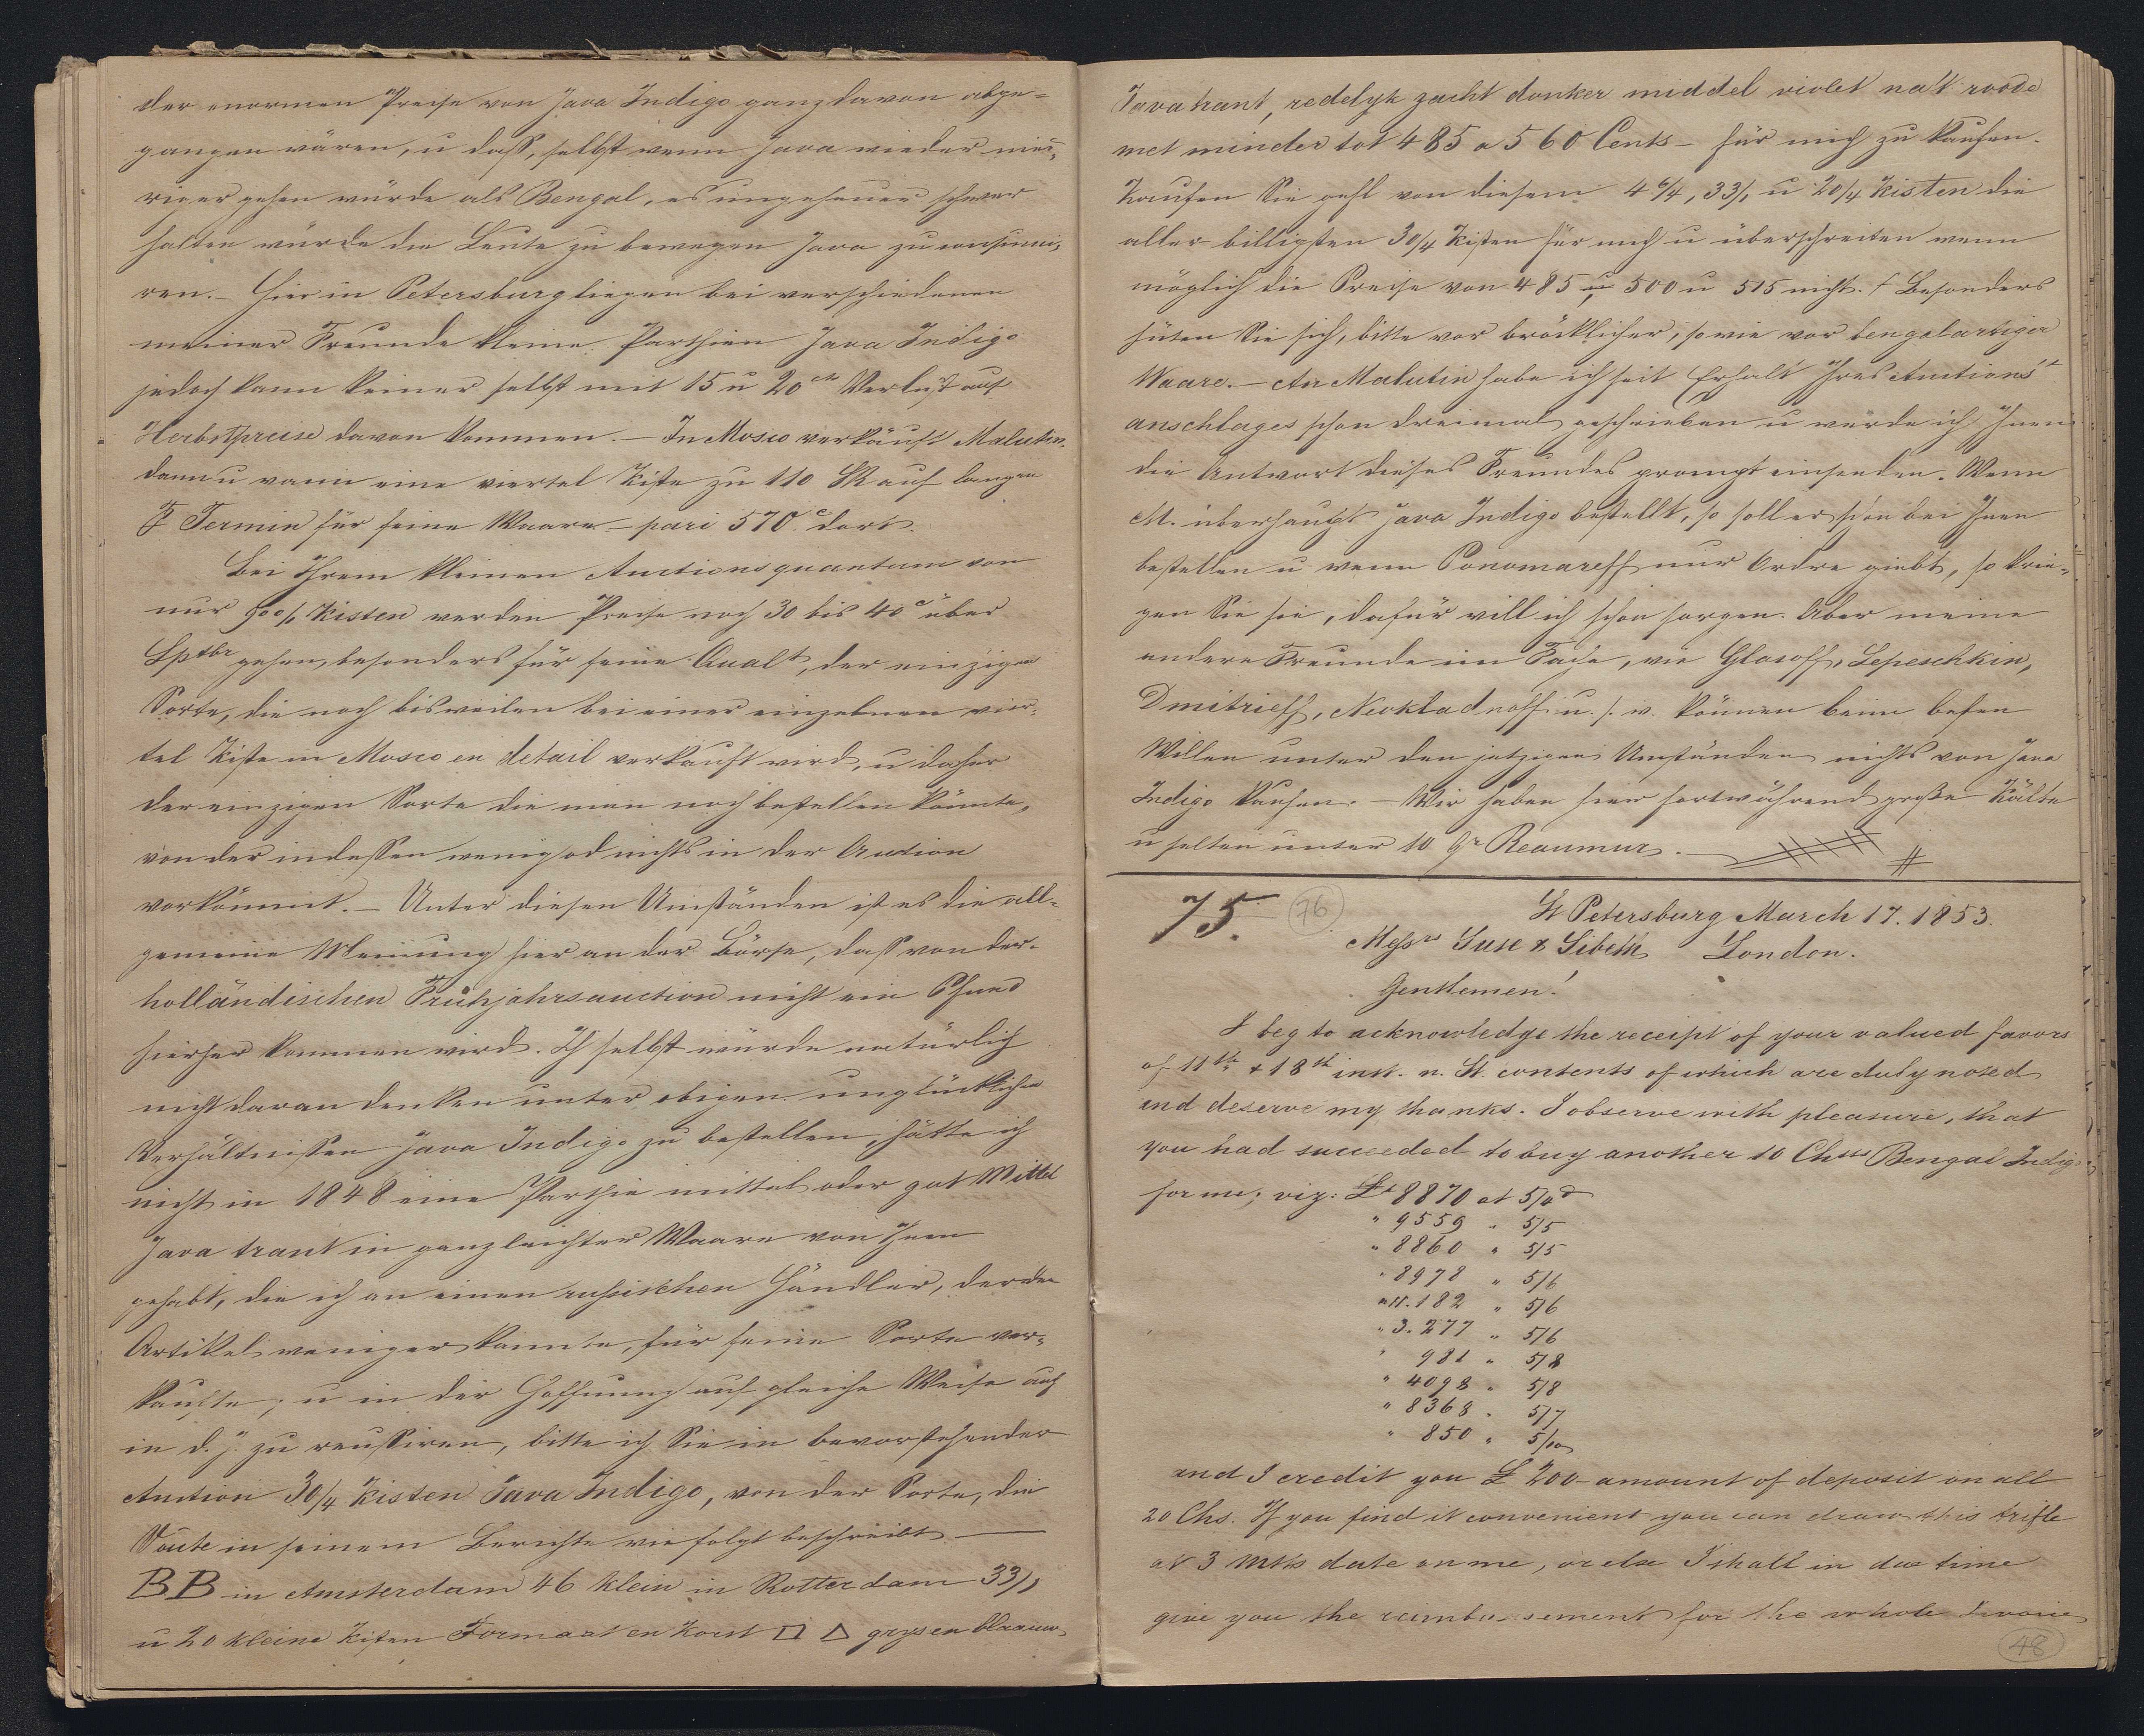 der enormen Preise von Java Indigo ganz davon abge-
gangen wären, u daß, selbst wenn Java wieder nied-
riger gehen würde als Bengal, es ungeheuer schwer
halten würde die Leute zu bewegen Java zu consumi-
ren. – Hier in Petersburg liegen bei verschiedenen
meiner Freunde kleine Parthien Java Indigo
jedoch kann keiner selbst mit 15 u 20 cts Verlust auf
Herbstpreise davon kommen. – In Mosco verkauft Malutin
dann u wann eine viertel Kiste zu 110 SR auf langen
Termin für feine Waare – pari 570 c dort.
Bei Ihrem kleinen Auctionsquantum von
nur 900/1 Kisten werden Preise noch 30 bis 40 c über
Sptbr gehen, besonders für feine Qualt, der einzigen
Sorte, die noch bisweilen bei einer einzelnen vier-
tel Kiste in Mosco en detail verkauft wird, u daher
der einzigen Sorte die man noch bestellen könnte,
von der indessen wenig od nichts in der Auction
vorkömmt. – Unter diesen Umständen ist es die all-
gemeine Meinung hier an der Börse, daß von der
holländischen Frühjahrsauction nicht ein Pfund
hierher kommen wird. Ich selbst würde natürlich
nicht daran denken unter obigen unglücklichen
Verhältnissen Java Indigo zu bestellen, hätte ich
nicht in 1848 eine Parthie mittel oder gut Mittel
Java trant in ganz leichter Waare von Ihnen
gehabt, die ich an einen russischen Händler, der den
Artikel weniger kannte, für feine Sorte ver-
kaufte; u in der Hoffnung auf gleiche Weise auch
in d. J. zu reussiren, bitte ich Sie in bevorstehender
Auction 30/4 Kisten Java Indigo, von der Sorte, die
Voute in seinem Berichte wie folgt beschreibt –
BB in Amsterdam 46 klein in Rotterdam 33/1
u 20 kleine Kisten Formaat en Korst □ △ grys en blaauw
Javatrant, redelyk zacht donker middel violet na't roode
met minder tot 485 a 560 Cents – für mich zu kaufen.
Kaufen Sie gefl von diesen 46/4, 33/1 u 20/4 Kisten die
aller billigsten 30/4 Kisten für mich u überschreiten wenn
möglich die Preise von 485 u 500 u 515 nicht. Besonders
hüten Sie sich, bitte vor bröcklicher, so wie vor bengalartiger
Waare. – An Malutin habe ich seit Erhalt Ihres Auctions-
anschlages schon dreimal geschrieben u werde ich Ihnen
die Antwort dieses Freundes prompt einsenden. Wenn
M. überhaupt Java Indigo bestellt, so soll er schon bei Ihnen
bestellen u wenn Ponomareff nur Ordre giebt, so krie-
gen Sie sie, dafür will ich schon sorgen. Aber meine
andern Freunde im Fache, wie Glasoff, Lepeschkin,
Dmitrieff, Neokladnoff u. s. w. können beim besten
Willen unter den jetzigen Umständen nichts von Java
Indigo kaufen. – Wir haben hier fortwährend große Kälte
u selten unter 10 Gr Reaumur. –
75. 76
St Petersburg March 17. 1853.
Messrs Suse & Sibeth London.
Gentlemen!
I beg to acknowledge the receipt of your valued favors
of 11th & 18th inst. n. St. contents of which are duly noted
and deserve my thanks. I observe with pleasure, that
you had succeeded to buy another 10 Chsts Bengal Indigo
for me; viz: Lt 8870 at 5/4d
" 9559 " 5/5
" 8860 " 5/5
" 8978 " 5/6
" 11.182 " 5/6
" 3.277 " 5/6
" 981 " 5/8
" 4098 " 5/8
" 8368 " 5/7
" 850 " 5/10
and I credit you £ 200 – amount of deposit on all
20 Chs. If you find it convenient you can draw this trifle
at 3 mths date on me, or else I shall in due time
give you the reimbursement for the whole Invoice
48